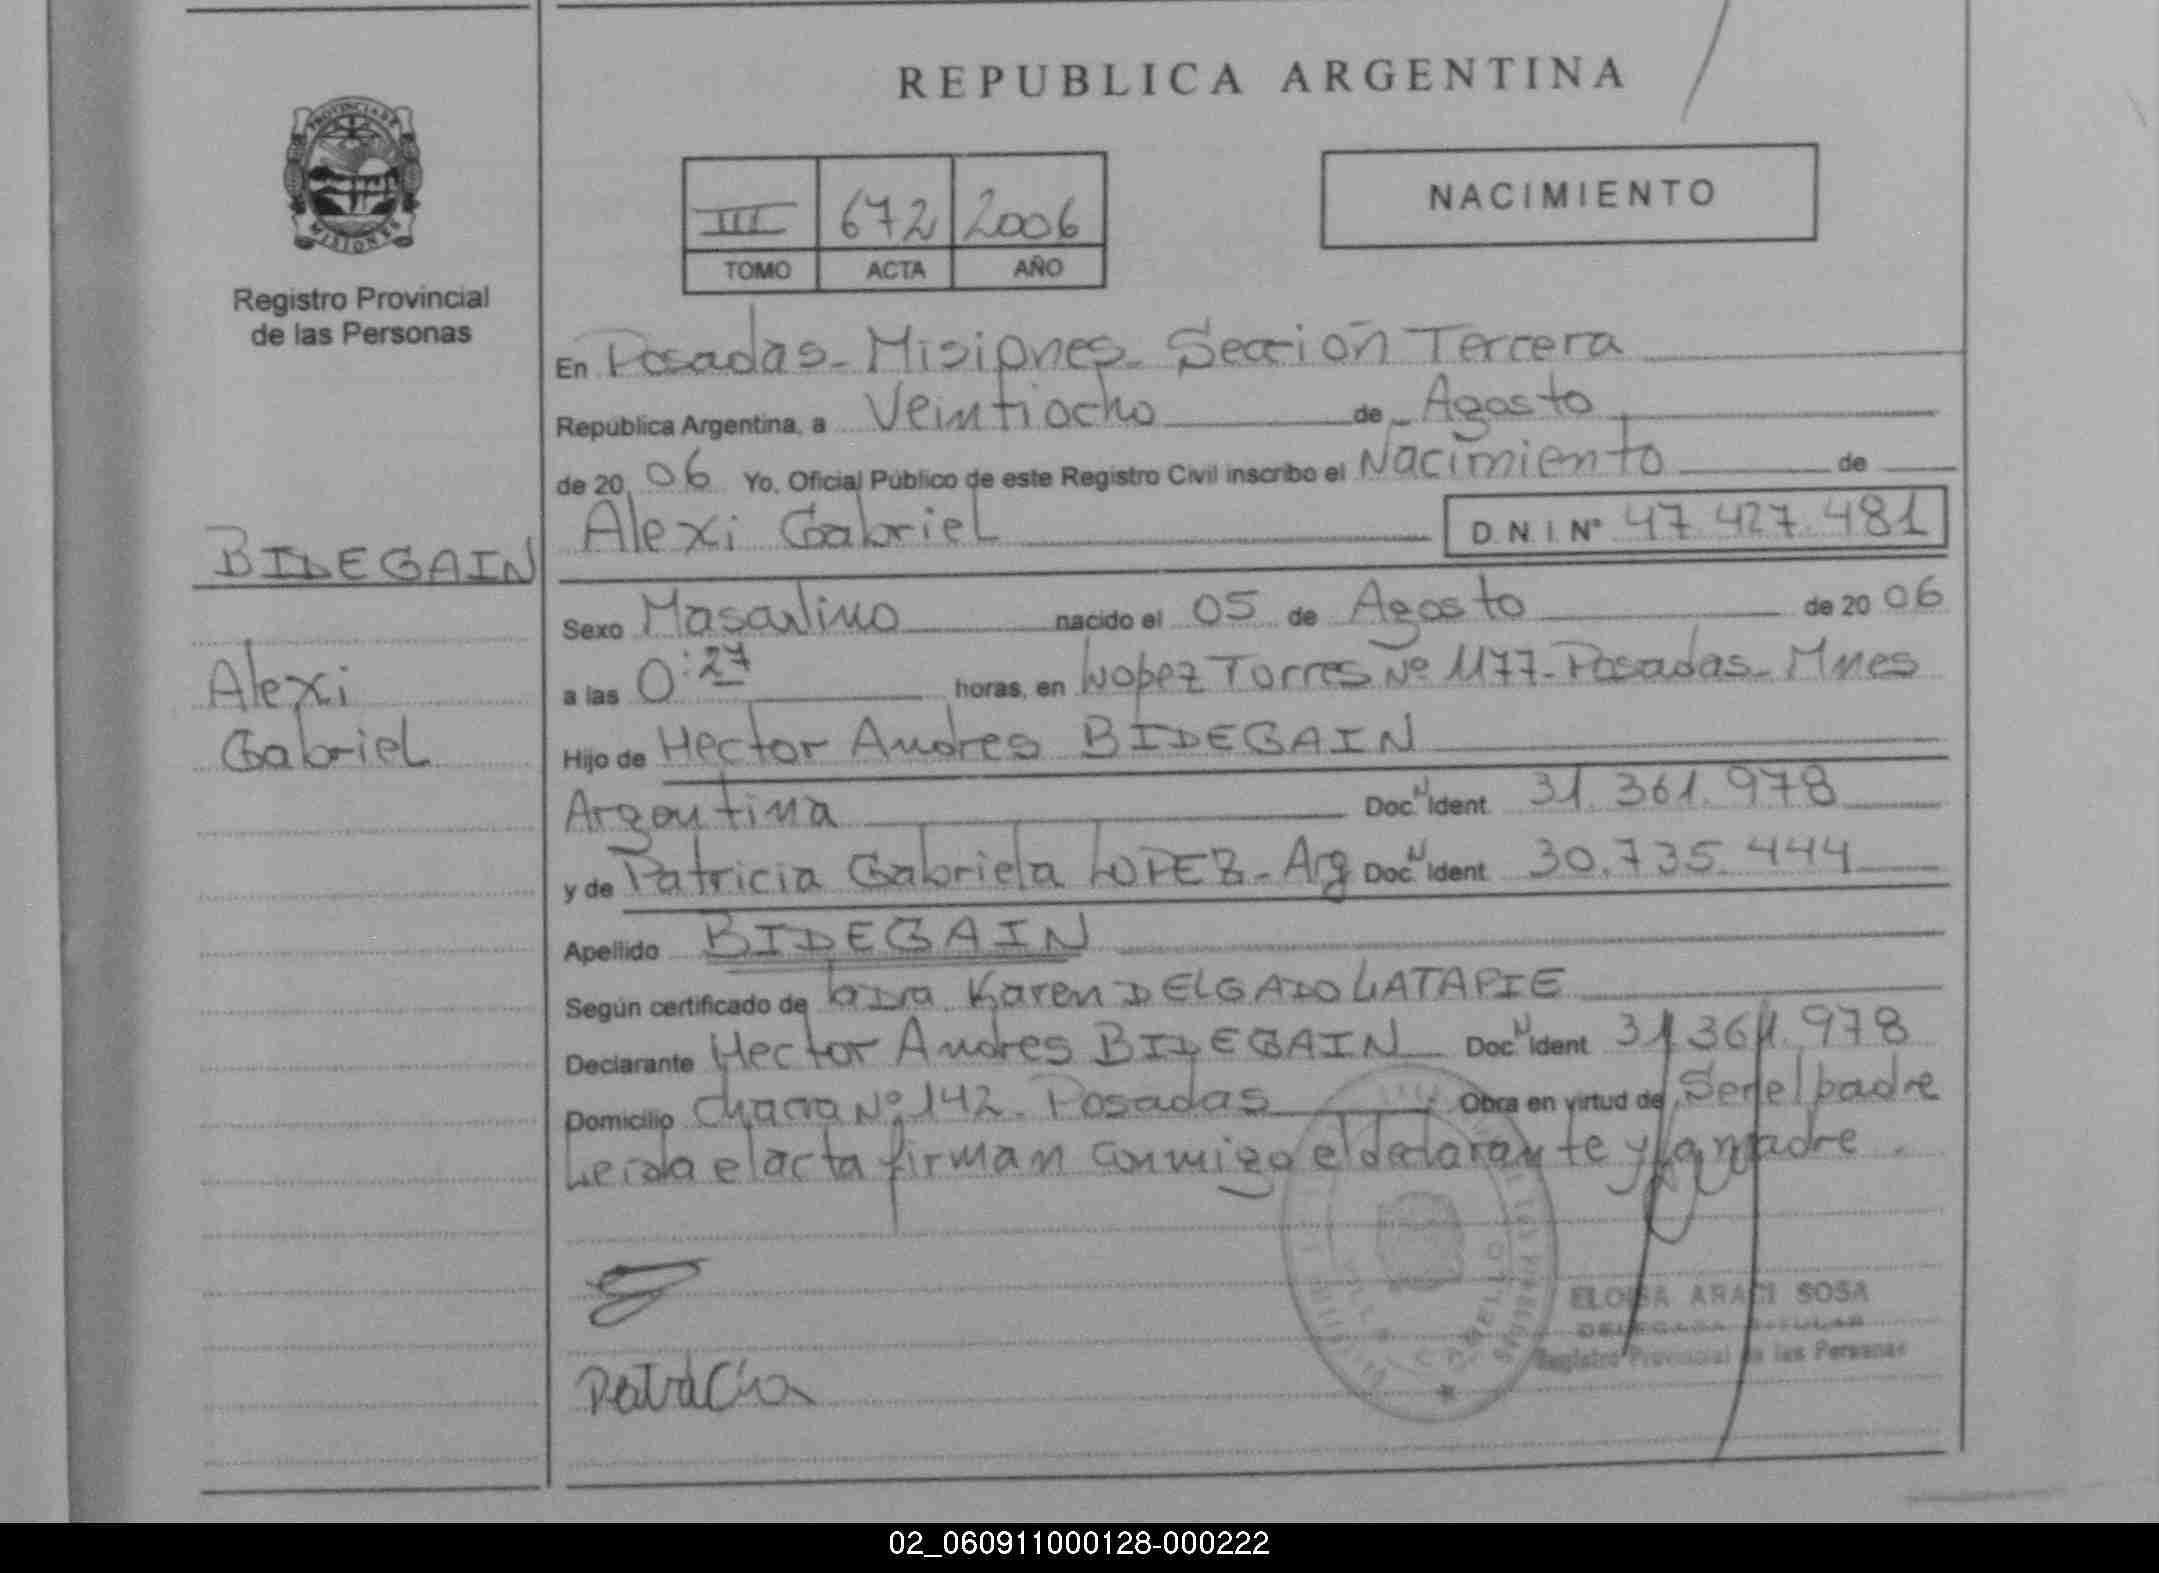 REPUBLICA ARGENTINA
PROVINCIA DE
MISIONES
Registro Provincial
de las Personas
III 672 2006
TOMO ACTA AÑO
NACIMIENTO
En Posadas - Misiones - Sección Tercera
República Argentina, a Veintiocho de Agosto
de 20 06 Yo, Oficial Público de este Registro Civil inscribo el Nacimiento de
Alexi Gabriel D.N.I. Nº 47.427.481
BIDEGAIN
Alexi
Gabriel
Sexo Masculino nacido el 05 de Agosto de 20 06
a las 0:27 horas, en Lopez Torres Nº 1177 - Posadas - Mnes
Hijo de Hector Andres BIDEGAIN
Argentina Doc. N Ident. 31.361.978
y de Patricia Gabriela LOPEZ - Arg Doc. N Ident. 30.735.444
Apellido BIDEGAIN
Según certificado de la Dra Karen DELGADO LATAPIE
Declarante Hector Andres BIDEGAIN Doc. N Ident. 31.361.978
Domicilio Chacra Nº 142 - Posadas Obra en virtud de Ser el padre
Leida el acta firman conmigo el declarante y la madre.
Patricia
ELOISA ARACI SOSA
DELEGADA TITULAR
Registro Provincial de las Personas
02_060911000128-000222